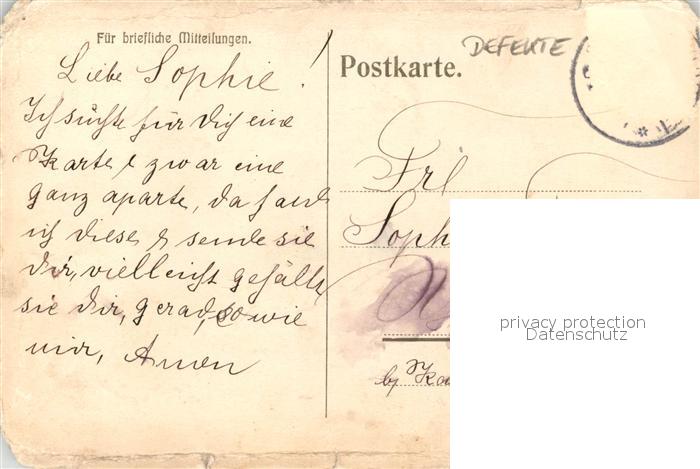 Für briefliche Mitteilungen.
Liebe Sophie!
Ich suchte für Dich eine
Karte & zwar eine
ganz aparte, da fand
ich diese & sende sie
Dir, vielleicht gefällt
sie Dir, gerad, so wie
mir, Amen
DEFEKTE
Postkarte.
Frl
Soph
b/ Ka
privacy protection
Datenschutz